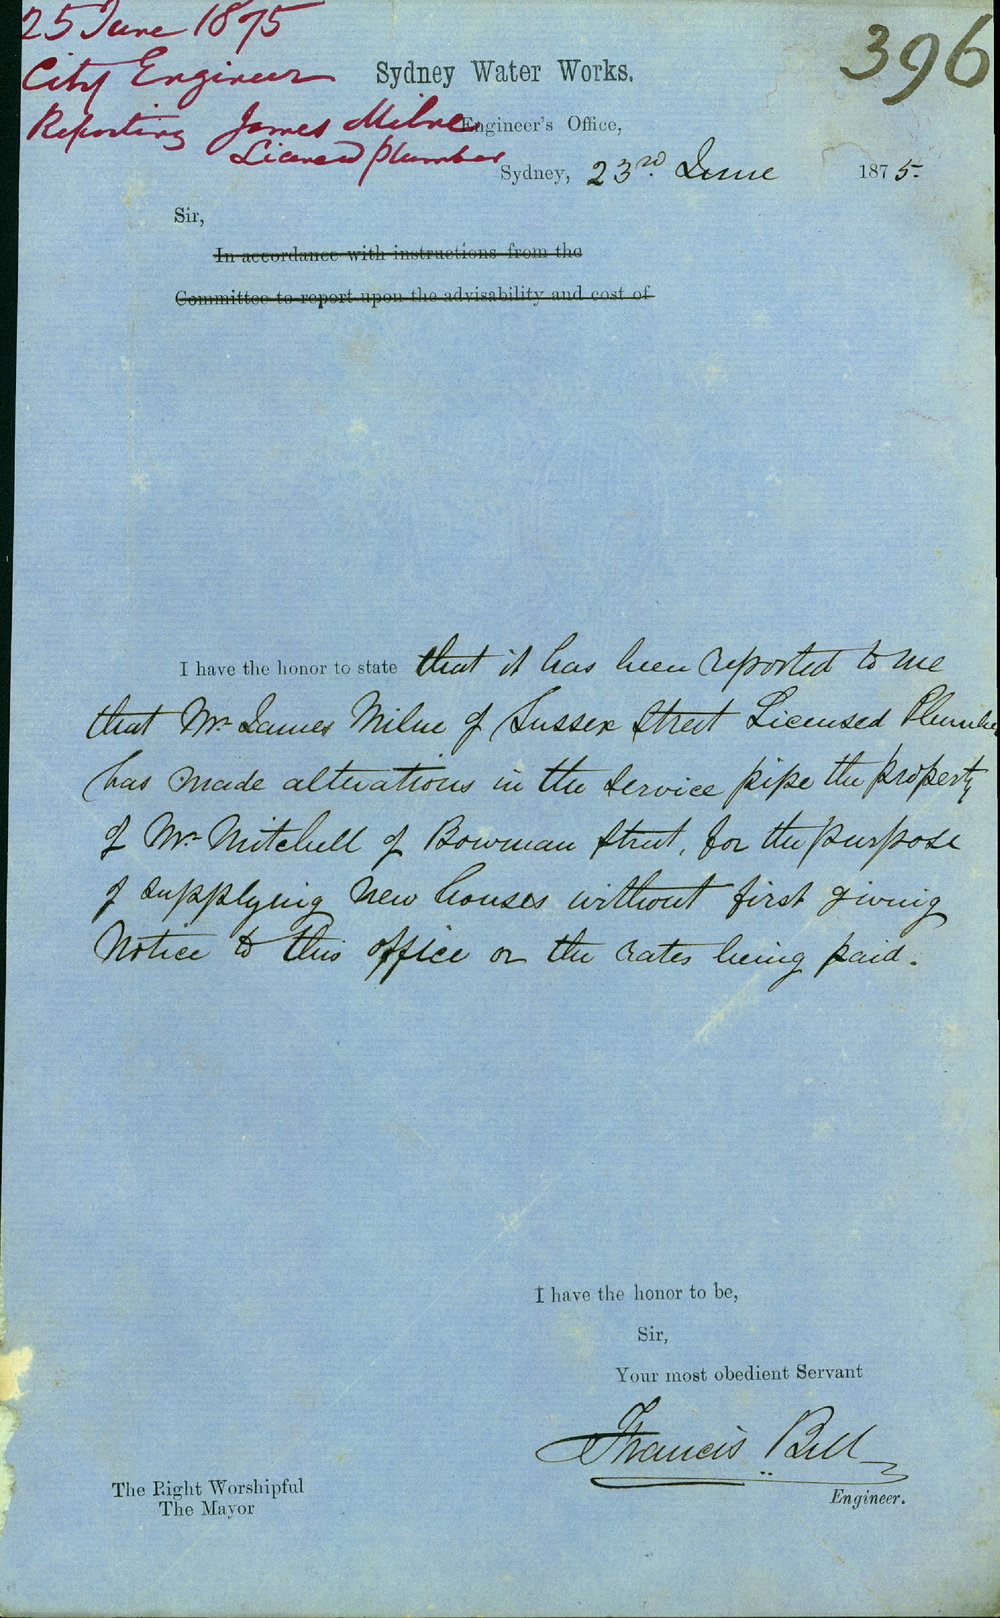 25 June 1875
396
City Engineer
Sydney Water Works.
Reporting James Milne
Licensed plumber
Engineer's Office,
Sydney, 23rd. June 1875.
Sir,
In accordance with instructions from the
Committee to report upon the advisability and cost of
I have the honor to state that it has been reported to me
that Mr James Milne of Sussex Street Licensed Plumber
has made alterations in the service pipe the property
of Mr Mitchell of Bowman Street, for the purpose
of supplying new houses without first giving
Notice to this office or the rates being paid.
I have the honor to be,
Sir,
Your most obedient Servant
Francis Bell
Engineer.
The Right Worshipful
The Mayor